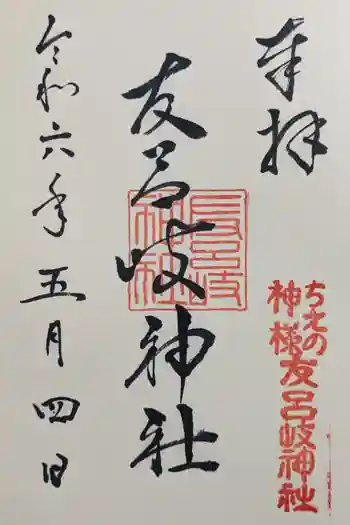 奉拝
ちえの
神様友呂岐神社
友呂岐神社
友呂岐
神社
令和六年五月四日